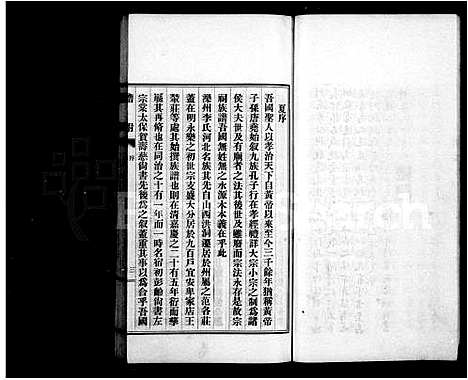 夏序
吾國聖人以孝治天下自黃帝以來至今三千餘年猶稱黃帝
子孫唐堯始叙九族孔子行在孝經禮詳大宗小宗之制爲諸
侯大夫世及有廟者之法其後世及雖廢而宗法永存是故宗
祠族譜吾國無姓無之水源木本義在乎此
灤州李氏河北名族其先自山西洪洞遷居於州屬之范各莊
蓋在明永樂之初世宗支盛大分居於九百戶宜安卑家店王
輦莊等處其始撰族譜也則在清嘉慶之二十有五年衍而摹
展其再脩也在同治之十有一年而一時名宿初彭齡尚書左
宗棠太保賀壽慈尚書先後爲之叙蓋重其事以爲合乎吾國
序
三